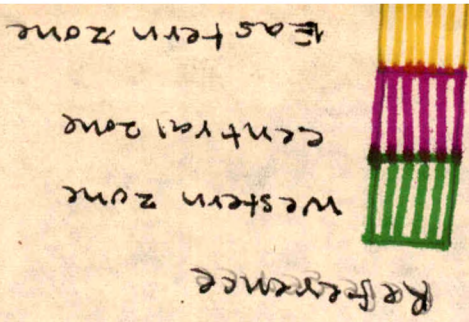 Reference
Western zone
Central zone
Eastern zone